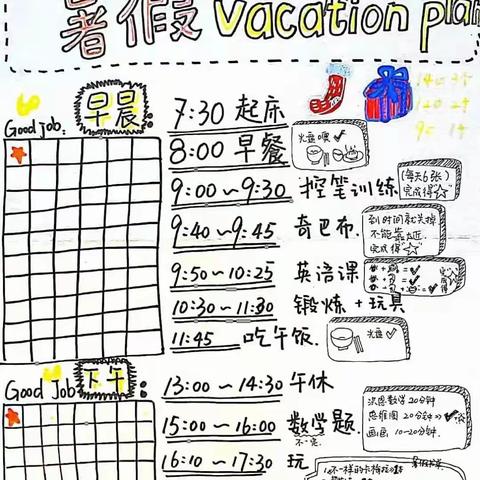 暑假 vacation plan
Good job: 早晨
7:30 起床
8:00 早餐
光盘噢 ✓
9:00~9:30 控笔训练
(每天6张)
完成得☆
9:40~9:45 奇巴布.
到时间就关掉
不能靠近.
完成得☆
9:50~10:25 英语课
10:30~11:30 锻炼+玩具
11:45 吃午饭.
光盘 ✓
Good Job 下午:
13:00~14:30 午休
15:00~16:00 数学题.
不一定
数学20分钟
思维图 20分钟
画画 10-20分钟.
16:10~17:30 玩